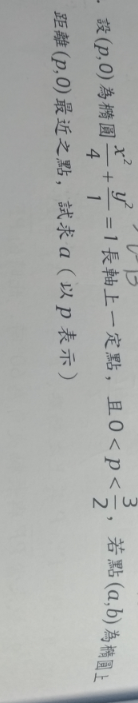 設(p,0)為橢圓 x²/4 + y²/1 = 1 長軸上一定點，且 0 < p < 3/2，若點(a,b)為橢圓上
距離(p,0)最近之點，試求 a（以 p 表示）